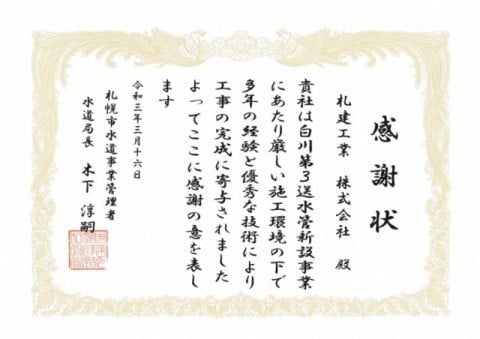 感謝状
札建工業 株式会社 殿
貴社は白川第3送水管新設事業
にあたり厳しい施工環境の下で
多年の経験と優秀な技術により
工事の完成に寄与されました
よってここに感謝の意を表し
ます
令和三年三月十六日
札幌市水道事業管理者
水道局長 木下 淳嗣